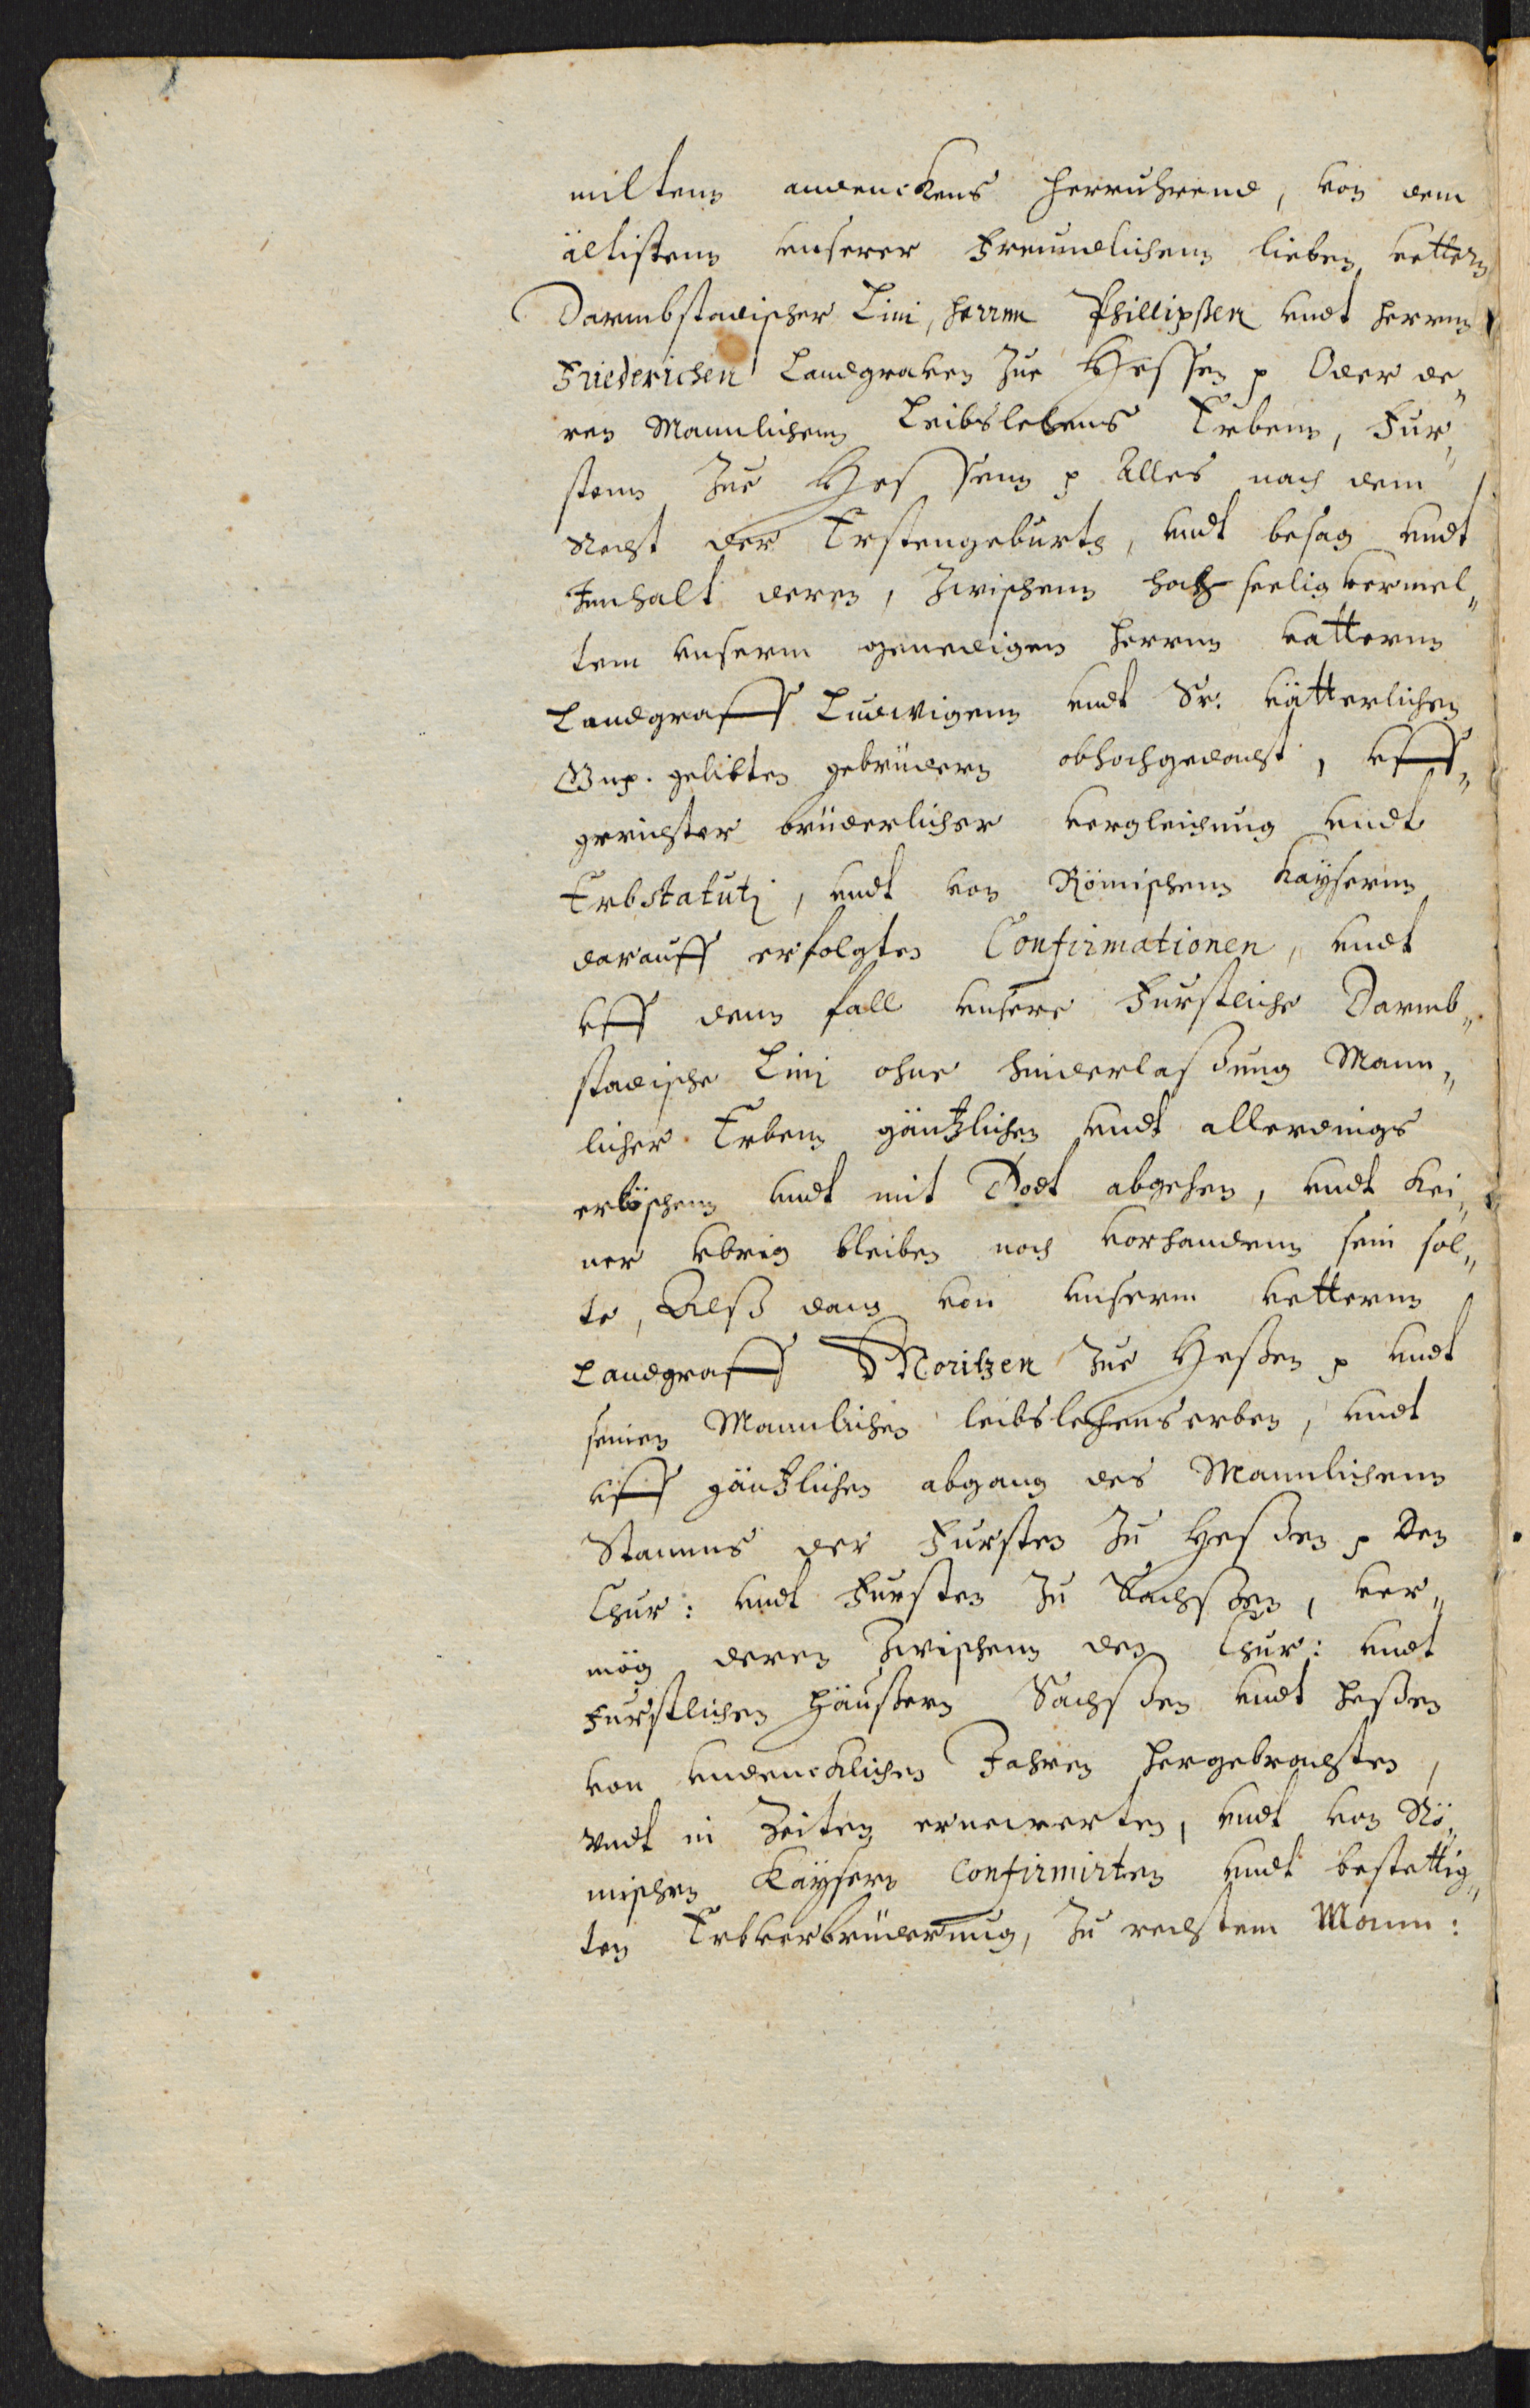 miltenn andenckens herruhrend, von dem
ältistenn vnserer Freundlichenn lieben vettern
Darmbstadischer Lini, herrnn Phillipßen vndt herrnn
Friederichen Landgraven Zue Hessen p Oder de„
ren Mannlichenn Leibslehens Erbenn, Fur„
stenn Zue Hessenn p Alles nach dem
Recht der Erstengeburth, vndt besag vndt
Innhalt deren, Zwischenn hochseelig vermel„
tem vnserm genedigen Herrnn Vatternn
Landgraff Ludwigenn vndt Sr. Vätterlichen
Gnp. gelibten gebrüdern obhochgedacht, vff„
gerichter brüderlicher vergleichung vndt
Erbstatuti, vndt von Römischenn Kaysernn
darauff erfolgten Confirmationen, vndt
vff denn fall vnsere Furstliche Darmb„
stadische Lini ohne hinderlaßung Mann„
licher Erbenn gäntzlichen vndt allerdings
erlöschenn vndt mit Dodt abgehen, vndt Kei„
ner vbrig bleiben noch vorhandenn sein sol„
te, Alß dann von vnserm vetternn
Landgraff Moritzen Zue Heßen p vndt
seinen Mannlichen leibslehenserben, vndt
vff gäntzlichen abgang des Mannlichenn
Stamms der Fursten Zu Heßen p Den
Chur: vndt Fursten Zu Sachßen, ver„
mög deren Zwischenn den Chur: vndt
Furstlichen Häußern Sachßen vndt Heßen
von vndencklichen Jahren hergebrachten,
vndt in Zeiten ernewerten, vndt von Rö„
mischen Kaysern Confirmirten vndt bestettig„
ten Erbverbrüderung, Zu rechtem Mann: